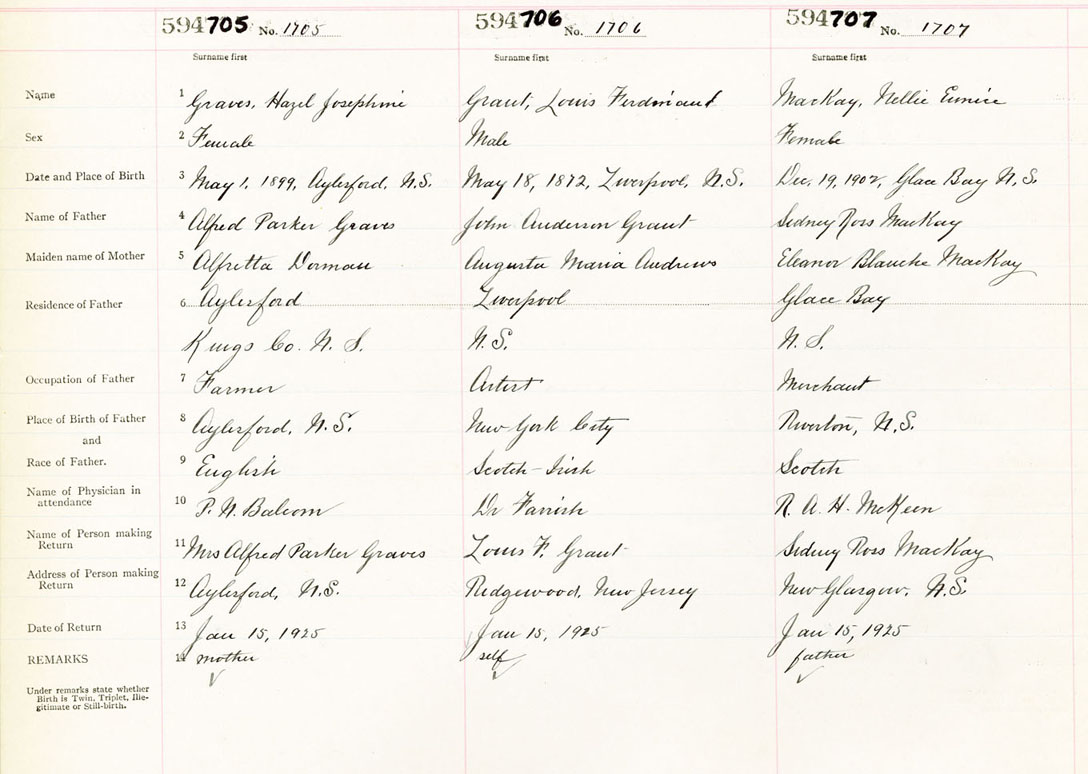 594705 No. 1705 594706 No. 1706 594707 No. 1707
Surname first Surname first Surname first
Name 1 Graves, Hazel Josephine Grant, Louis Ferdinand MacKay, Nellie Eunice
Sex 2 Female Male Female
Date and Place of Birth 3 May 1, 1899, Aylesford, N.S. May 18, 1872, Liverpool, N.S. Dec. 19, 1902, Glace Bay N.S.
Name of Father 4 Alfred Parker Graves John Anderson Grant Sidney Ross MacKay
Maiden name of Mother 5 Alfretta Dorman Augusta Maria Andrews Eleanor Blanche MacKay
Residence of Father 6 Aylesford Liverpool Glace Bay
Kings Co. N.S. N.S. N.S.
Occupation of Father 7 Farmer Artist Merchant
Place of Birth of Father 8 Aylesford, N.S. New York City Riverton, N.S.
and
Race of Father. 9 English Scotch-Irish Scotch
Name of Physician in
attendance 10 P. N. Balcom Dr Farrish R. A. H. McKeen
Name of Person making
Return 11 Mrs Alfred Parker Graves Louis F. Grant Sidney Ross MacKay
Address of Person making
Return 12 Aylesford, N.S. Ridgewood, New Jersey New Glasgow, N.S.
Date of Return 13 Jan 15, 1925 Jan 15, 1925 Jan 15, 1925
REMARKS 14 mother self father
Under remarks state whether
Birth is Twin, Triplet, Ille-
gitimate or Still-birth.